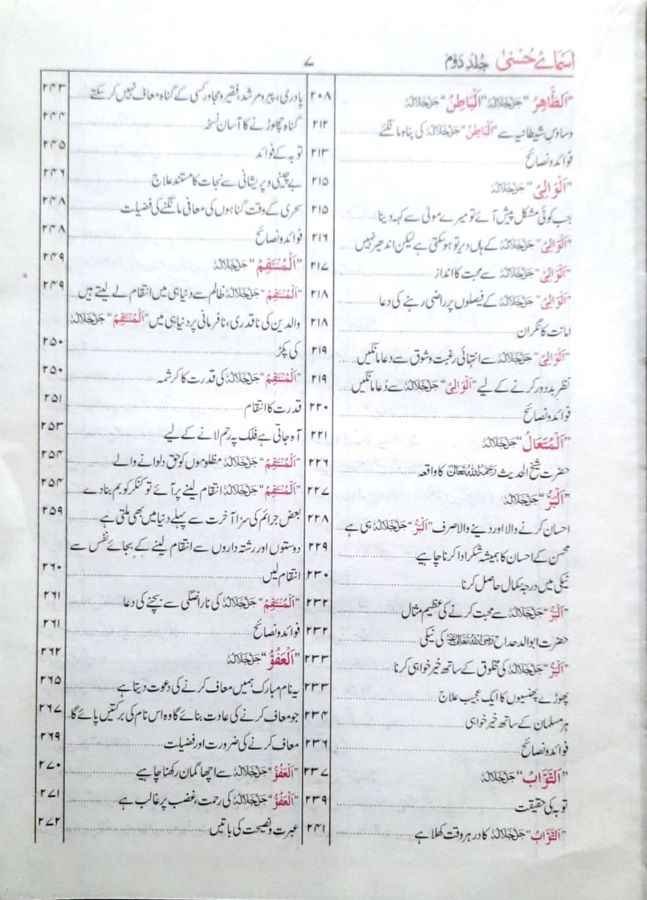 اسمائے حُسنیٰ جلد دوم
۷
"اَلظَّاهِرُ" جَلَّ جَلَالُہٗ "اَلْبَاطِنُ" جَلَّ جَلَالُہٗ ۲۰۸
وساوس شیطانیہ سے "اَلْبَاطِنُ" جَلَّ جَلَالُہٗ کی پناہ مانگئے ۲۱۲
فوائد و نصائح ۲۱۳
"اَلْوَالِیْ" جَلَّ جَلَالُہٗ ۲۱۵
جب کوئی مشکل پیش آئے تو میرے مولیٰ سے کہہ دینا ۲۱۵
"اَلْوَالِیْ" جَلَّ جَلَالُہٗ کے ہاں دیر تو ہو سکتی ہے لیکن اندھیر نہیں ۲۱۶
"اَلْوَالِیْ" جَلَّ جَلَالُہٗ سے محبت کا انداز ۲۱۷
"اَلْوَالِیْ" جَلَّ جَلَالُہٗ کے فیصلوں پر راضی رہنے کی دعا ۲۱۸
امانت کا نگران ۲۱۸
"اَلْوَالِیْ" جَلَّ جَلَالُہٗ سے انتہائی رغبت و شوق سے دعا مانگیں ۲۱۹
نظر بد دور کرنے کے لیے "اَلْوَالِیْ" جَلَّ جَلَالُہٗ سے دُعا مانگیں ۲۱۹
فوائد و نصائح ۲۲۰
"اَلْمُتَعَالُ" جَلَّ جَلَالُہٗ ۲۲۱
حضرت شیخ الحدیث رَحِمَہُ اللّٰہُ تَعَالٰی کا واقعہ ۲۲۶
"اَلْبَرُّ" جَلَّ جَلَالُہٗ ۲۲۷
احسان کرنے والا اور دینے والا صرف "اَلْبَرُّ" جَلَّ جَلَالُہٗ ہی ہے ۲۲۸
محسن کے احسان کا ہمیشہ شکر ادا کرنا چاہیے ۲۲۹
نیکی میں درجۂ کمال حاصل کرنا ۲۳۰
"اَلْبَرُّ" جَلَّ جَلَالُہٗ سے محبت کرنے کی عظیم مثال ۲۳۲
حضرت ابوالدحداح رَضِیَ اللّٰہُ تَعَالٰی عَنْہُ کی نیکی ۲۳۲
"اَلْبَرُّ" جَلَّ جَلَالُہٗ کی مخلوق کے ساتھ خیر خواہی کرنا ۲۳۳
پھوڑے پھنسیوں کا ایک عجیب علاج ۲۳۳
ہر مسلمان کے ساتھ خیر خواہی ۲۳۴
فوائد و نصائح ۲۳۶
"اَلتَّوَّابُ" جَلَّ جَلَالُہٗ ۲۳۷
توبہ کی حقیقت ۲۳۹
"اَلتَّوَّابُ" جَلَّ جَلَالُہٗ کا در ہر وقت کھلا ہے ۲۴۱
پادری، پیر و مرشد، فقیر و مجاور کسی کے گناہ معاف نہیں کر سکتے ۲۴۳
گناہ چھوڑنے کا آسان نسخہ ۲۴۴
توبہ کے فوائد ۲۴۵
بے چینی و پریشانی سے نجات کا مستند علاج ۲۴۶
سحری کے وقت گناہوں کی معافی مانگنے کی فضیلت ۲۴۸
فوائد و نصائح ۲۴۸
"اَلْمُنْتَقِمُ" جَلَّ جَلَالُہٗ ۲۴۹
"اَلْمُنْتَقِمُ" جَلَّ جَلَالُہٗ ظالم سے دنیا ہی میں انتقام لے لیتے ہیں ۲۴۹
والدین کی ناقدری، نافرمانی پر دنیا ہی میں "اَلْمُنْتَقِمُ" جَلَّ جَلَالُہٗ
کی پکڑ ۲۵۰
"اَلْمُنْتَقِمُ" جَلَّ جَلَالُہٗ کی قدرت کا کرشمہ ۲۵۰
قدرت کا انتقام ۲۵۱
آہ جاتی ہے فلک پر رحم لانے کے لیے ۲۵۳
"اَلْمُنْتَقِمُ" جَلَّ جَلَالُہٗ مظلوموں کو حق دلوانے والے ۲۵۴
"اَلْمُنْتَقِمُ" جَلَّ جَلَالُہٗ انتقام لینے پر آئے تو کنکر کو بم بنا دے ۲۵۴
بعض جرائم کی سزا آخرت سے پہلے دنیا میں بھی ملتی ہے ۲۵۹
دوستوں اور رشتہ داروں سے انتقام لینے کے بجائے نفس سے
انتقام لیں ۲۶۰
"اَلْمُنْتَقِمُ" جَلَّ جَلَالُہٗ کی ناراضگی سے بچنے کی دعا ۲۶۱
فوائد و نصائح ۲۶۱
"اَلْعَفُوُّ" جَلَّ جَلَالُہٗ ۲۶۲
یہ نام مبارک ہمیں معاف کرنے کی دعوت دیتا ہے ۲۶۵
جو معاف کرنے کی عادت بنائے گا وہ اس نام کی برکتیں پائے گا ۲۶۷
معاف کرنے کی ضرورت اور فضیلت ۲۶۹
"اَلْعَفُوُّ" جَلَّ جَلَالُہٗ سے اچھا گمان رکھنا چاہیے ۲۷۰
"اَلْعَفُوُّ" جَلَّ جَلَالُہٗ کی رحمت، غضب پر غالب ہے ۲۷۱
عبرت و نصیحت کی باتیں ۲۷۲